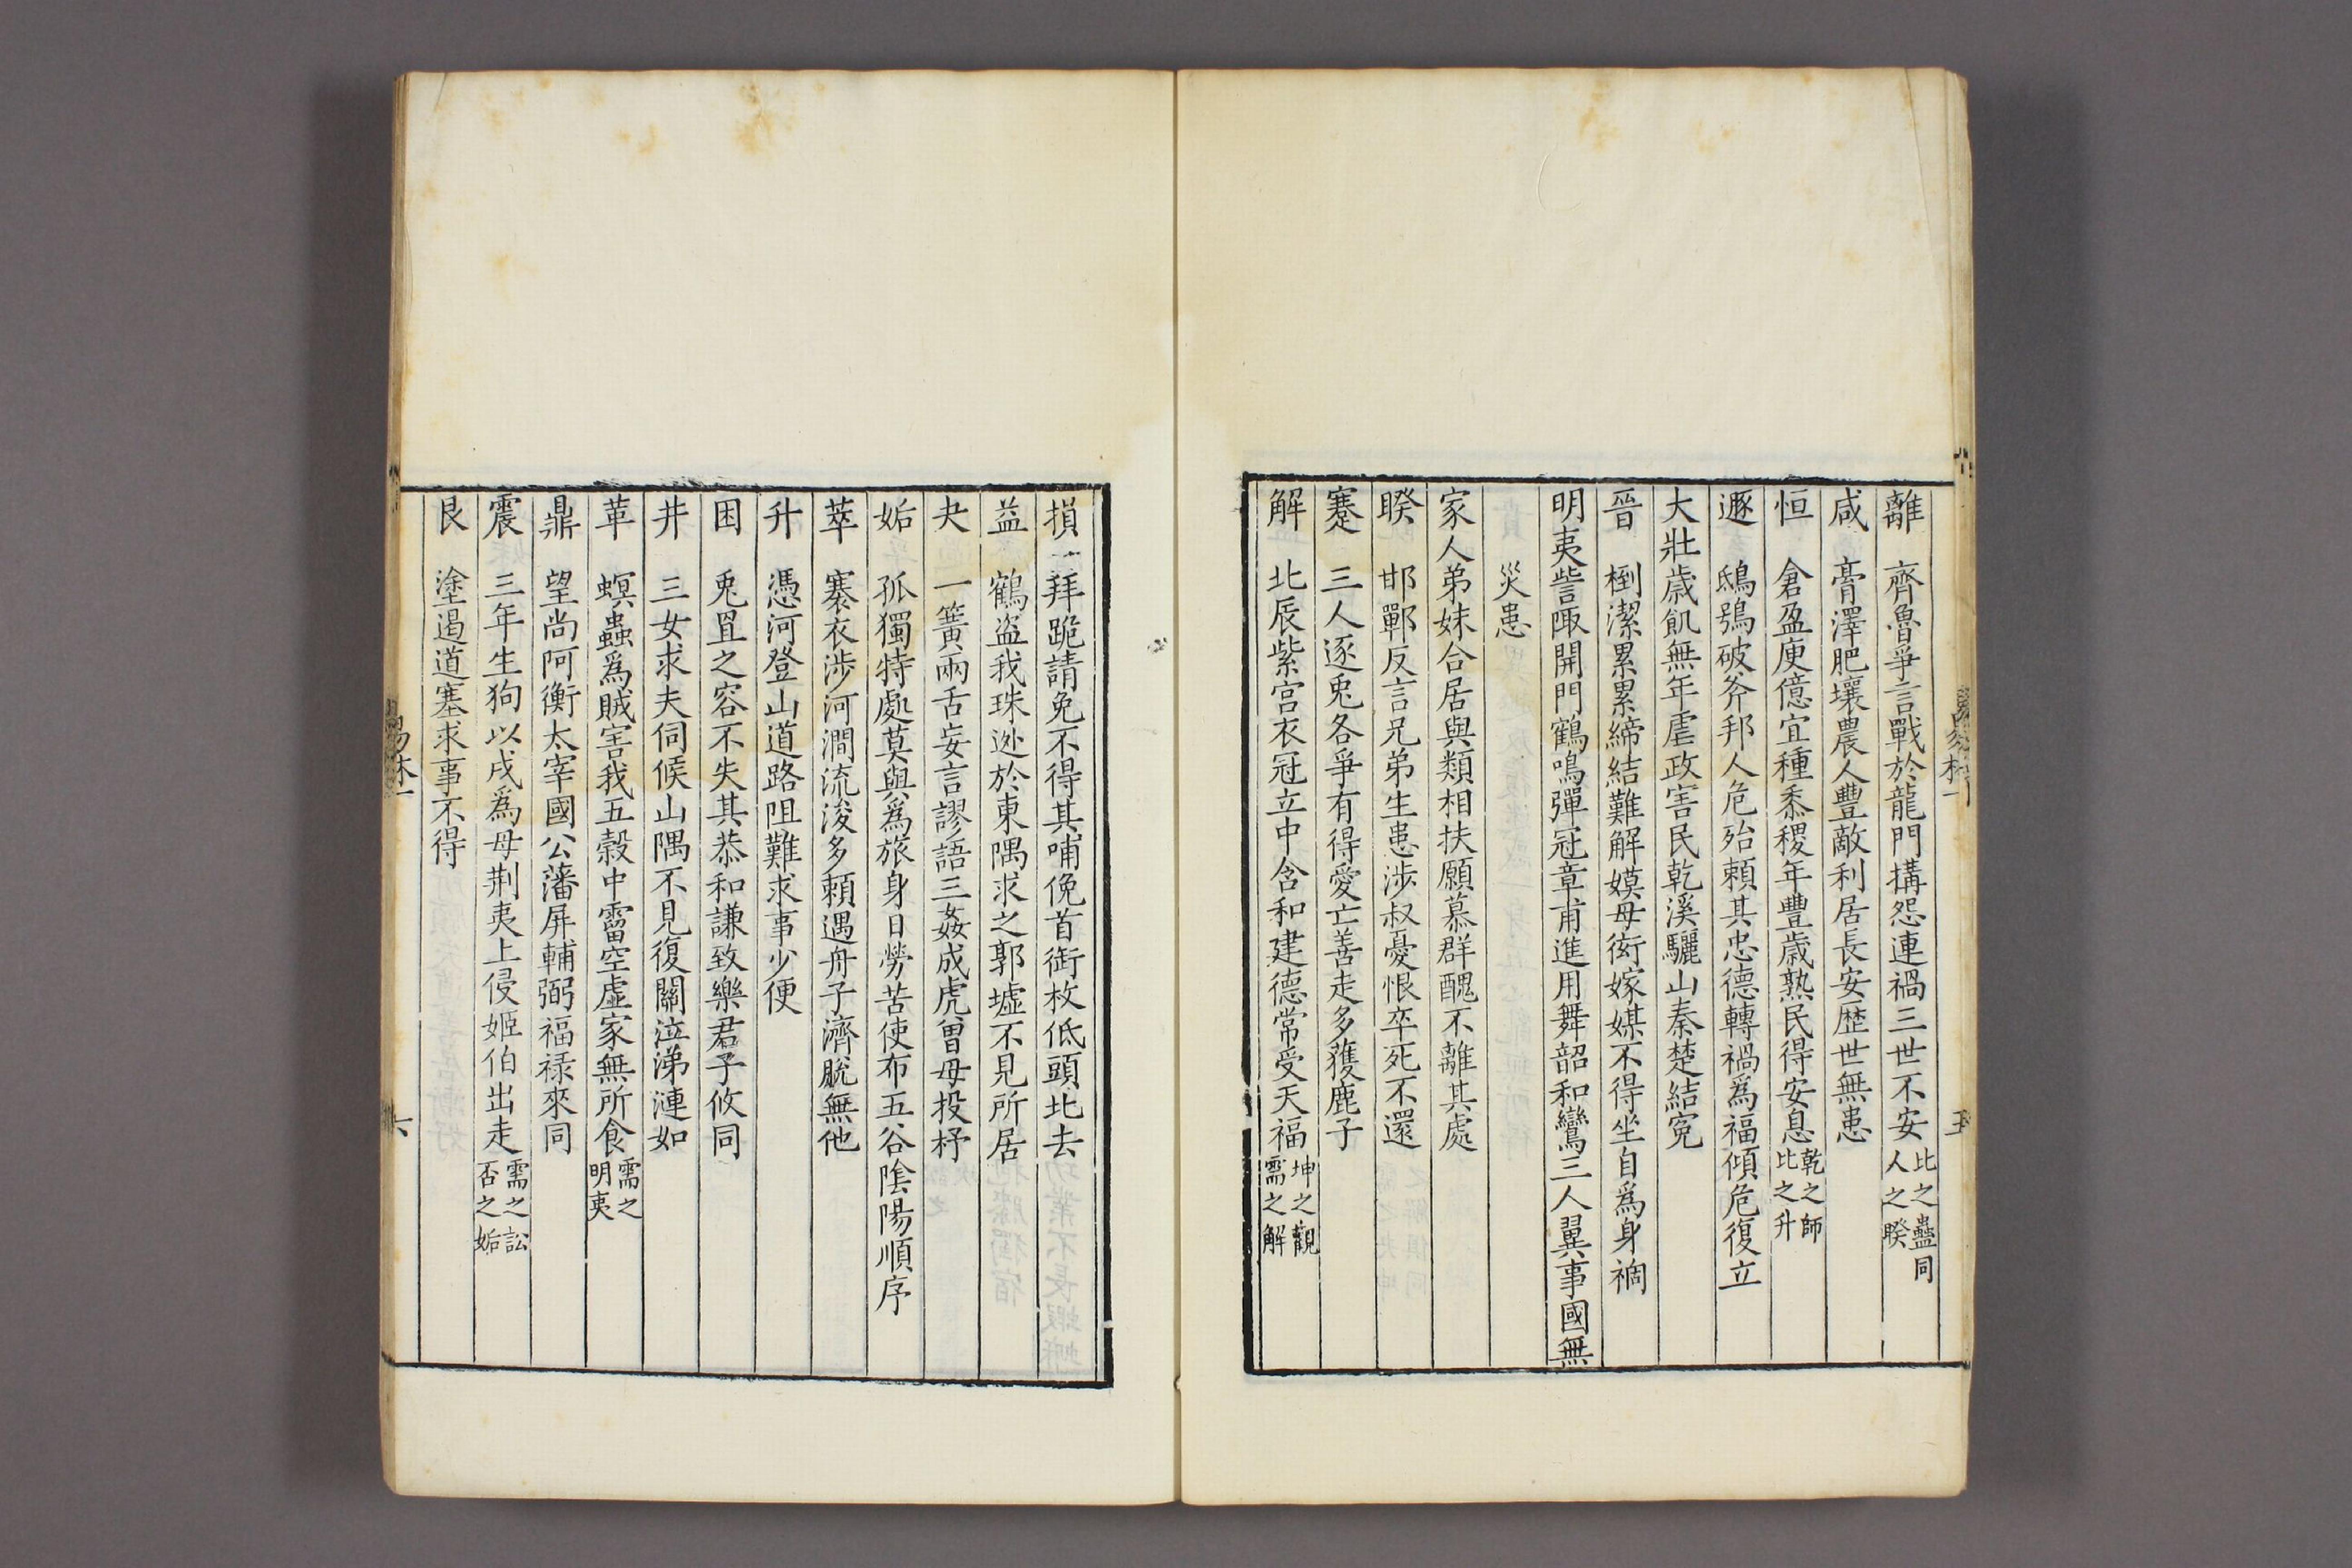 離 齊魯爭言戰於龍門搆怨連禍三世不安比之蠱同人之睽
咸 膏澤肥壤農人豐敞利居長安歷世無患
恒 倉盈庾億宜種黍稷年豐歲熟民得安息乾之師比之升
遯 鴟鴞破斧邦人危殆賴其忠德轉禍爲福傾危復立
大壯歲飢無年虐政害民乾溪驪山秦楚結寃
晉 㓗累累締結難解嫫母衒嫁媒不得坐自爲身禍
明夷訾陬開門鶴鳴彈冠章甫進用舞韶和鸞三人翼事國無
災患
家人弟妹合居與類相扶願慕群醜不離其處
睽 邯鄲反言兄弟生患涉叔憂恨卒死不還
蹇 三人逐兎各爭有得愛亡善走多獲鹿子
解 北辰紫宫衣冠立中含和建德常受天福坤之觀需之解
五
損 拜跪請免不得其哺俛首銜枚低頭北去
益 鶴盗我珠逃於東隅求之郭墟不見所居
夬 一簧兩舌妄言謬語三姦成虎曾母投杼
姤 孤獨特處莫與爲旅身日勞苦使布五谷隂陽順序
萃 褰衣涉河澗流浚多賴遇舟子濟脫無他
升 憑河登山道路阻難求事少便
困 兎罝之容不失其恭和謙致樂君子攸同
井 三女求夫伺候山隅不見復關泣涕漣如
革 螟蟲爲賊害我五榖中霤空虛家無所食需之明夷
鼎 望尚阿衡太宰國公藩屏輔弼福祿來同
震 三年生狗以戌爲母荆夷上侵姬伯出走需之訟否之姤
艮 塗遏道塞求事不得
易林一
六